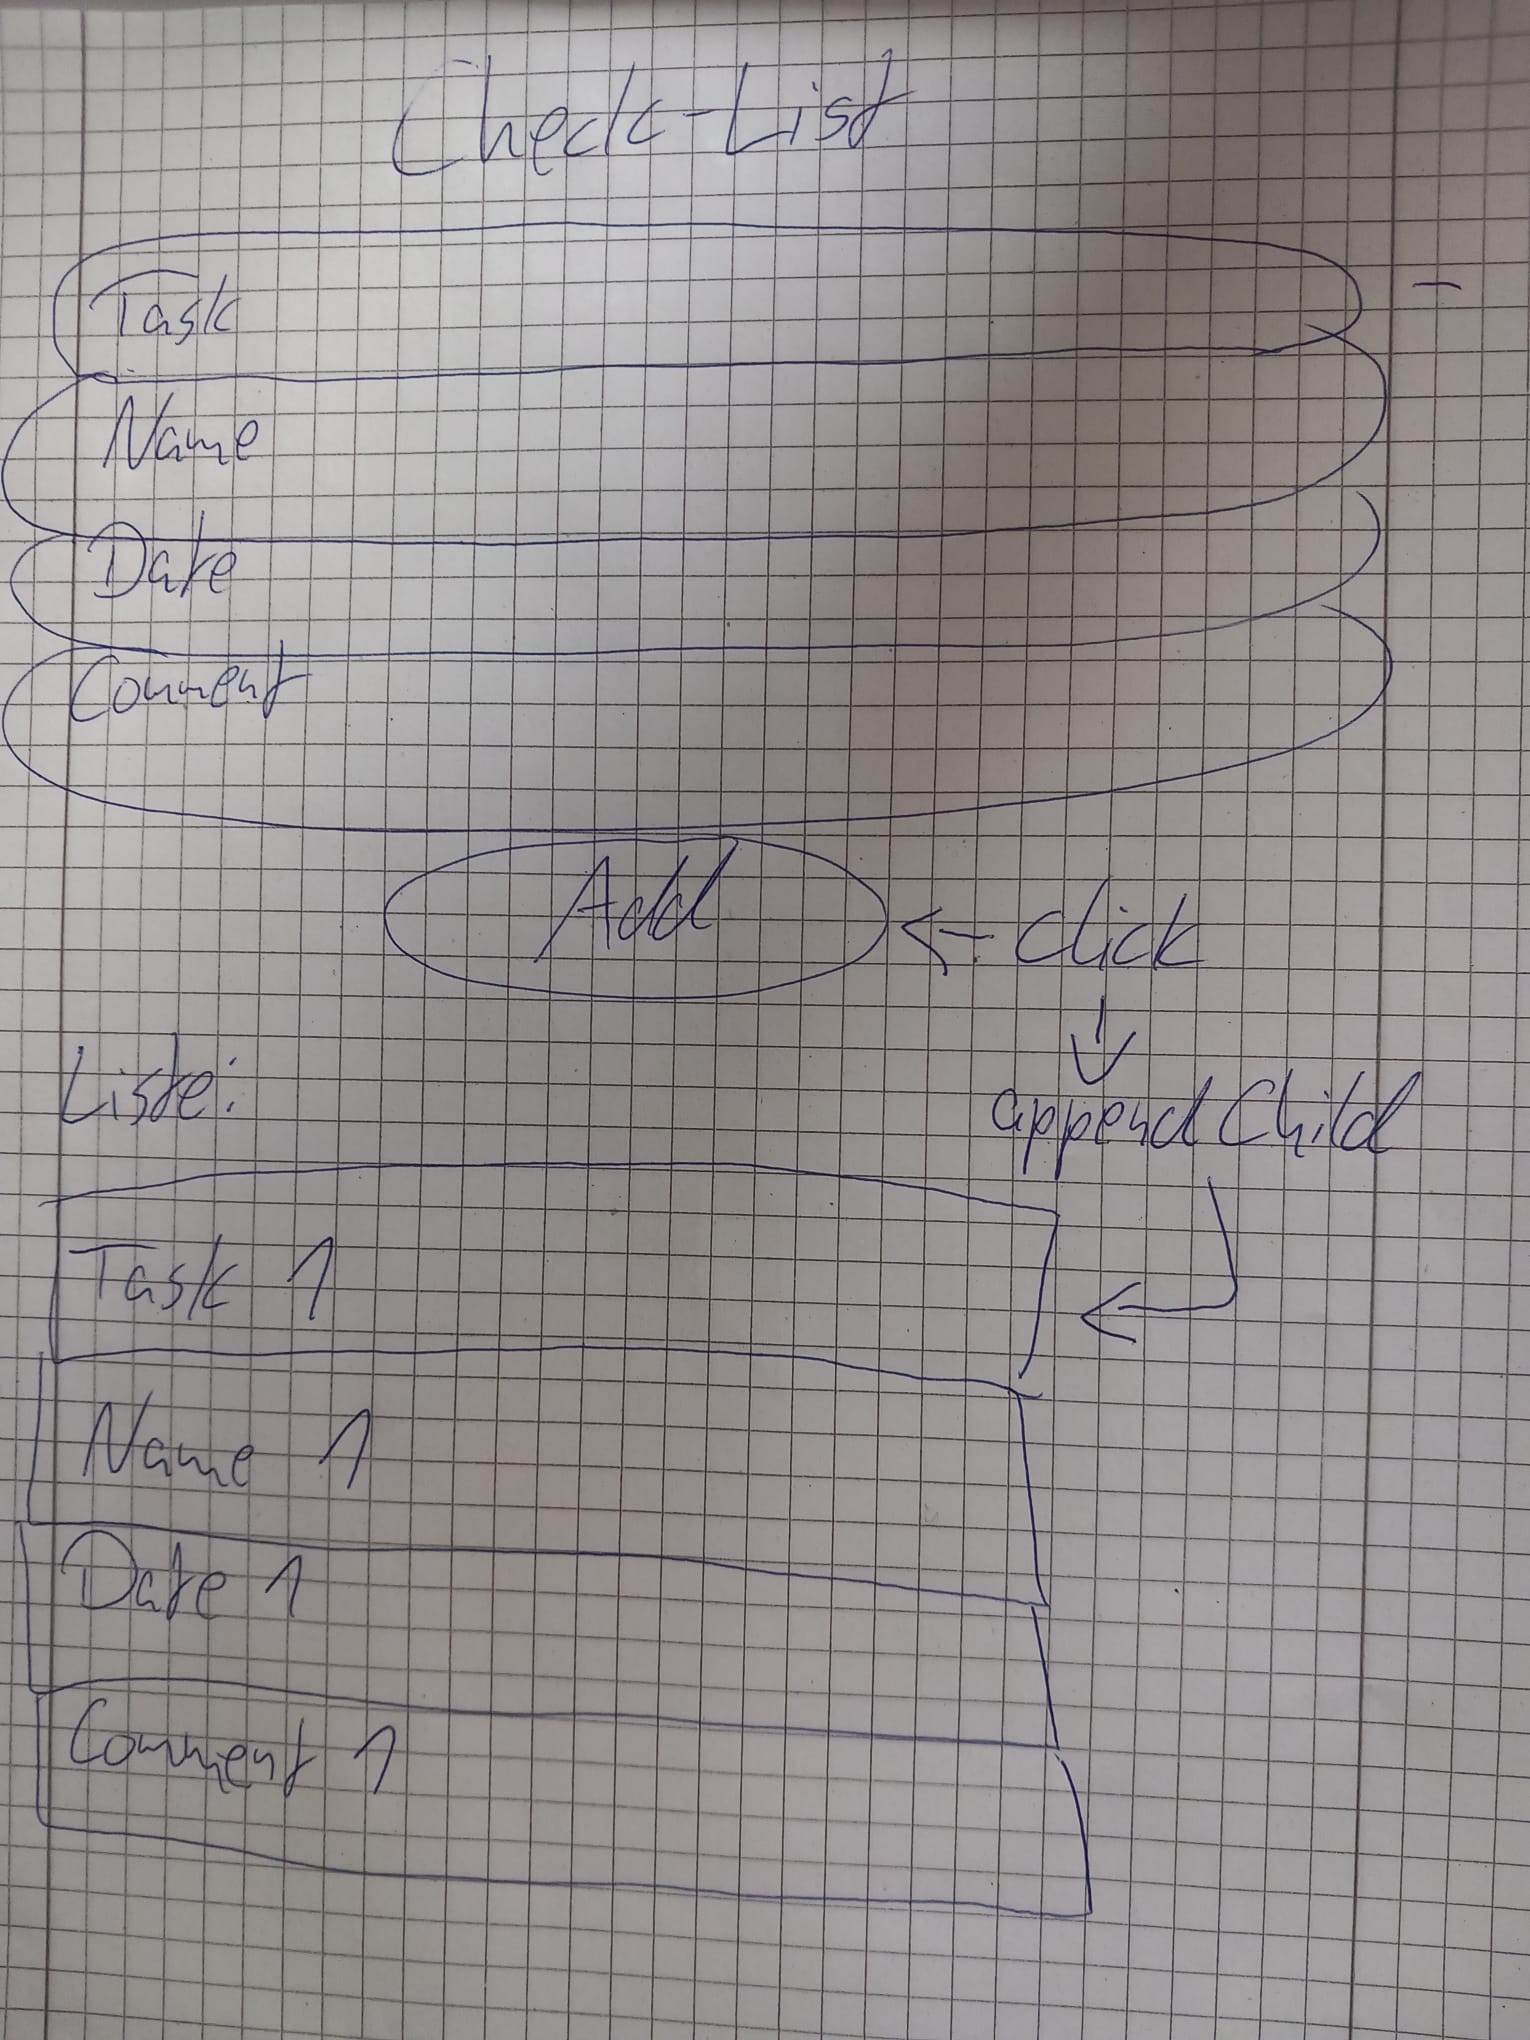 Check-List
Task
Name
Date
Comment
Add ← click
↓
appendChild
Liste:
Task 1
Name 1
Date 1
Comment 1